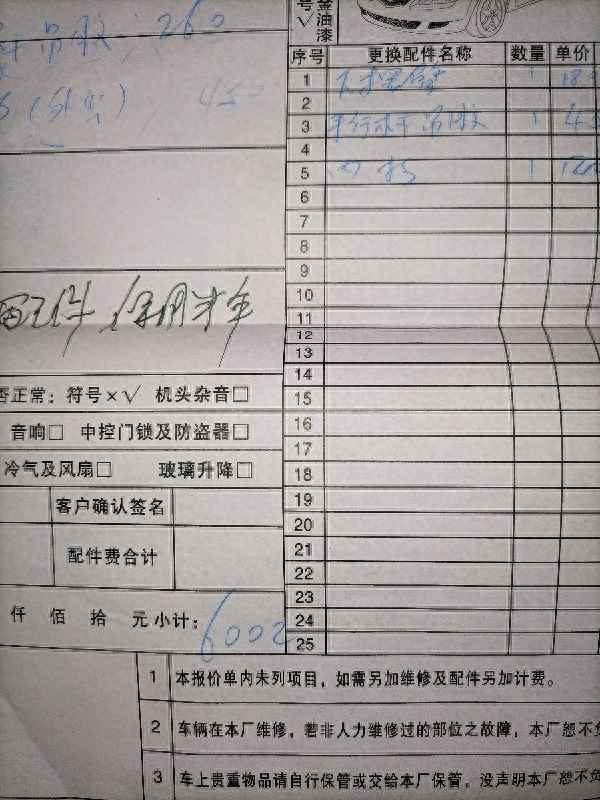 金
号 油
√ 漆
吊胶 260
序号 更换配件名称 数量 单价
1 1
2
3 平行杆吊胶 1
4
5 1
6
7
8
9
10
11
12
13
14
15
16
17
18
19
20
21
22
23
24
25
保用半年
否正常：符号×√ 机头杂音□
音响□ 中控门锁及防盗器□
冷气及风扇□ 玻璃升降□
客户确认签名
配件费合计
仟 佰 拾 元 小计：6002
1 本报价单内未列项目，如需另加维修及配件另加计费。
2 车辆在本厂维修，若非人力维修过的部位之故障，本厂恕不负
3 车上贵重物品请自行保管或交给本厂保管，没声明本厂恕不负